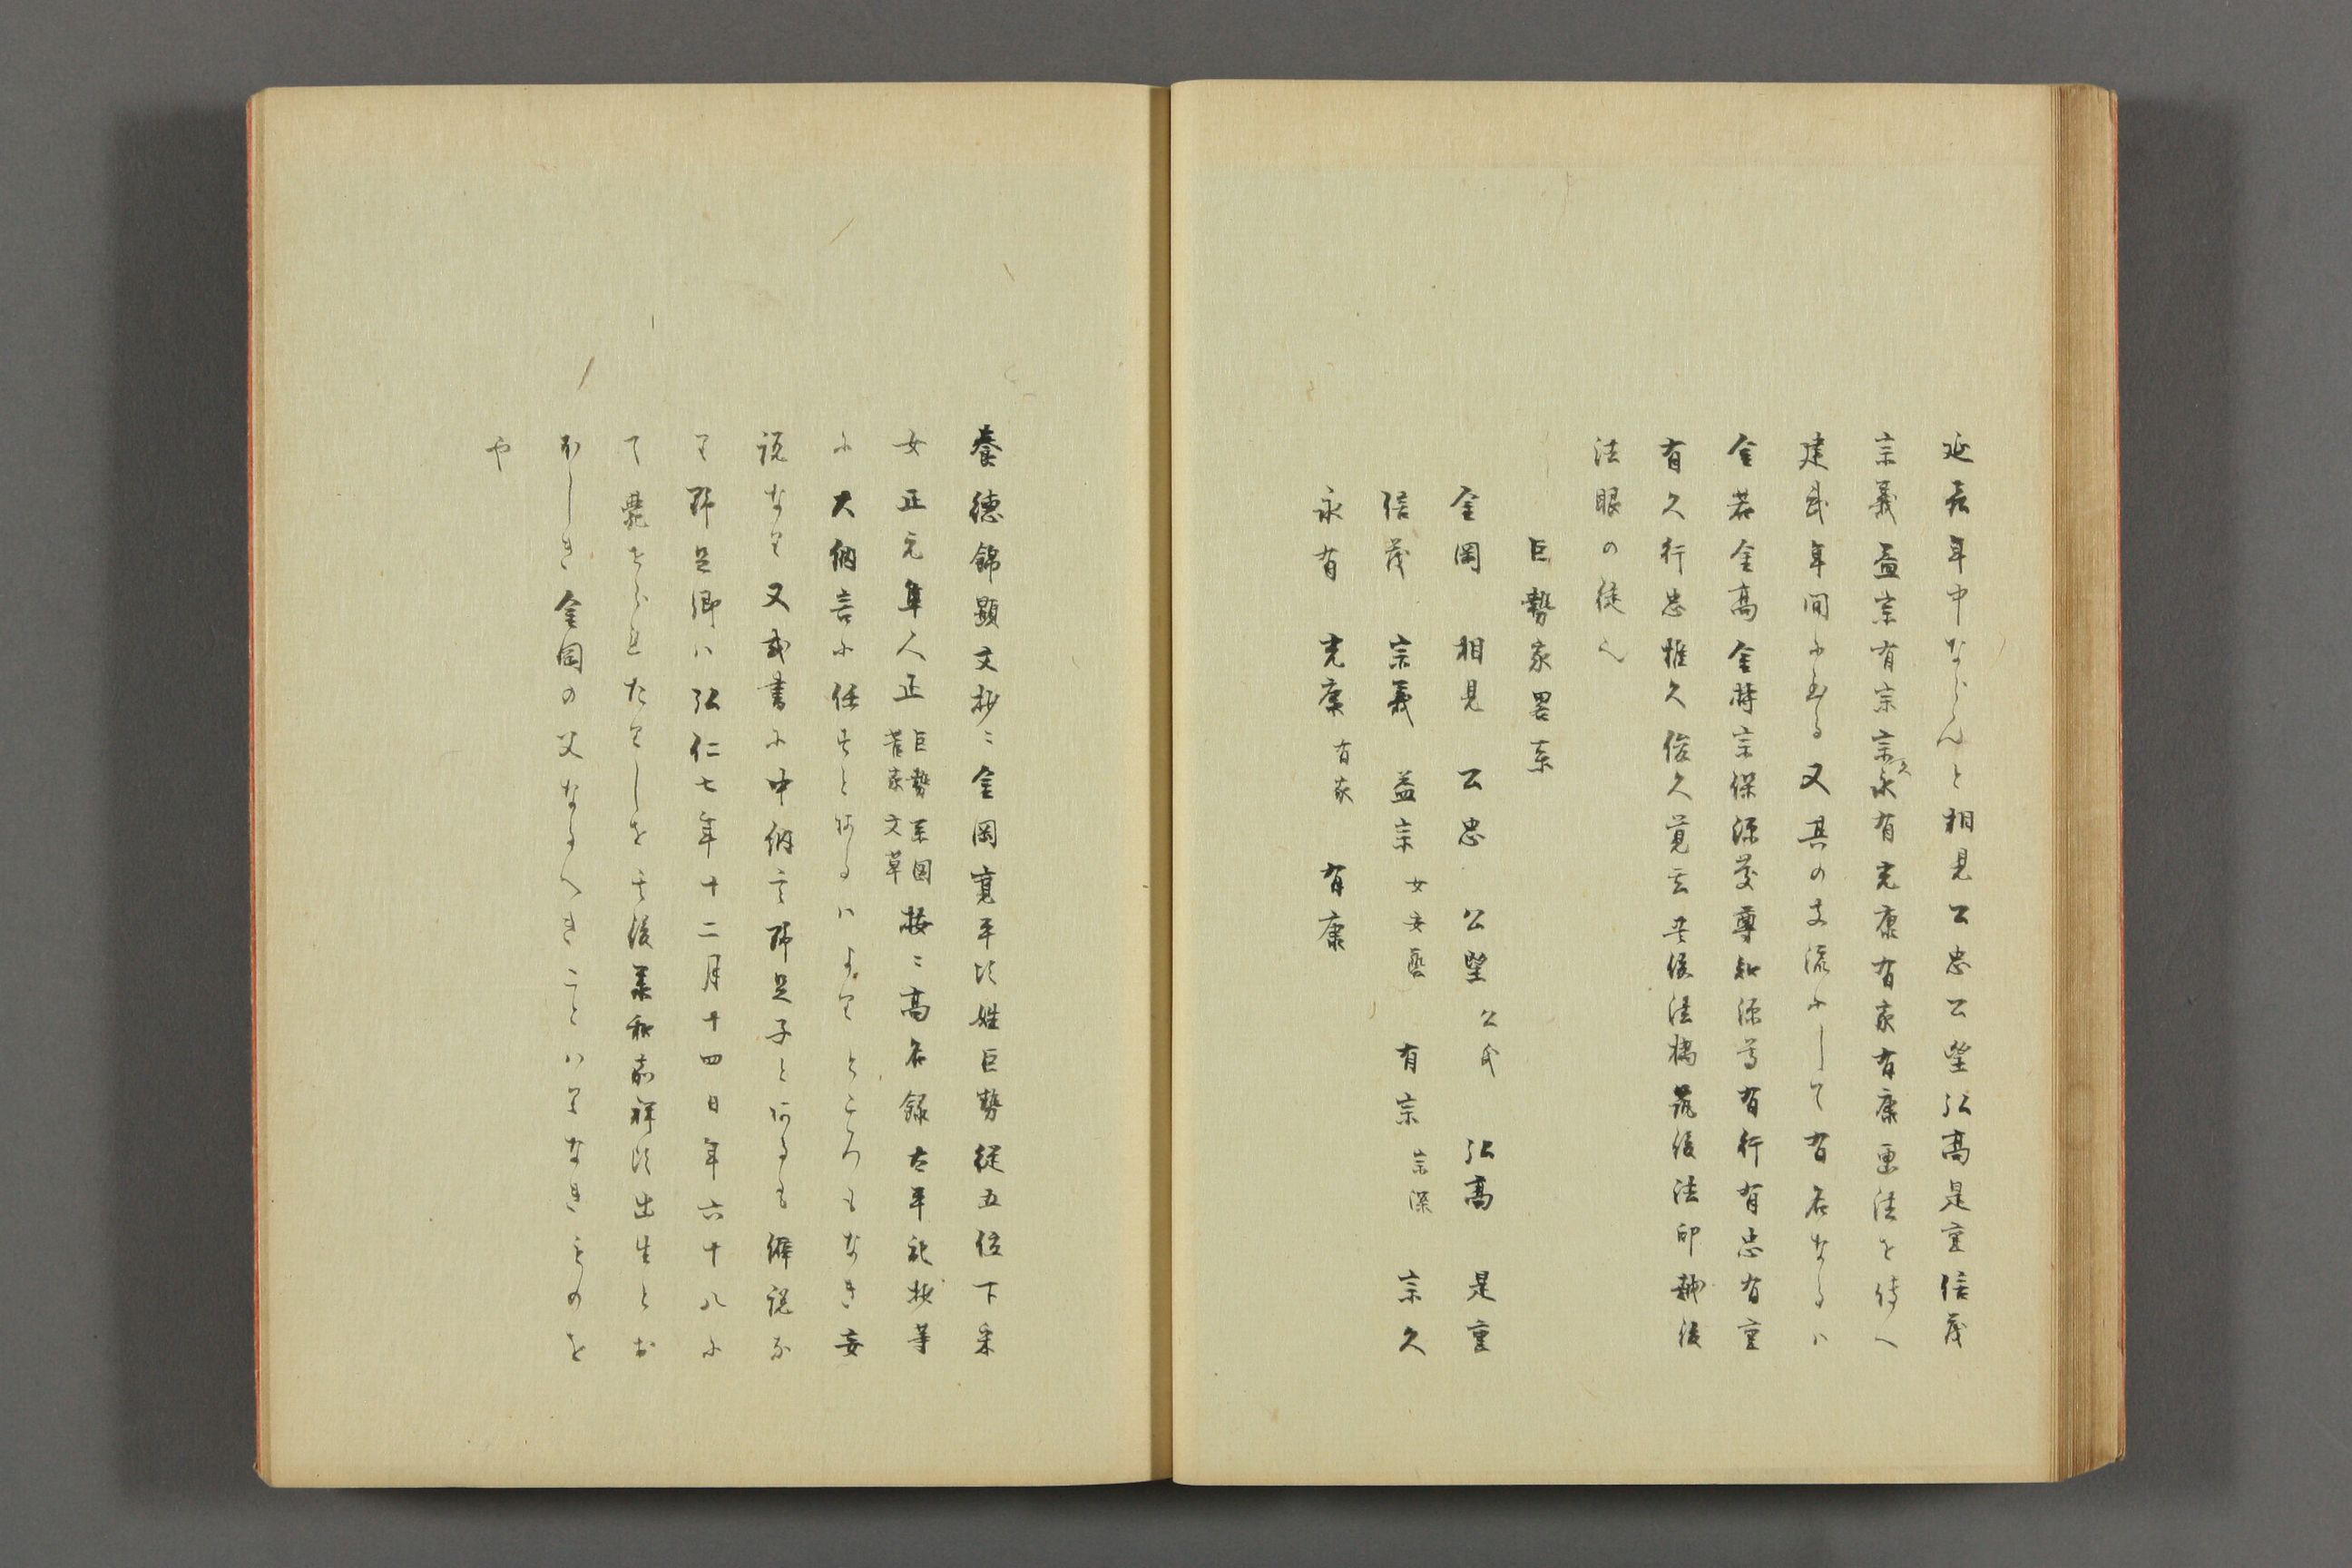 延長年中ならんと相見公忠公望弘高是重信茂
宗義益宗有宗宗久永有光康有家有康画法を傳へ
建武年間に至る又其の支流にして有名なるハ
金若金高金時宗保源慶尊知源尊有行有忠有重
有久行忠惟久俊久覚云其後法橋筑後法印越後
法眼の徒也
巨勢家畧系
金岡 相見 公忠 公望 公茂 弘高 是重
信茂 宗義 益宗 女安藝 有宗 宗深 宗久
永有 光康 有家 有康
養徳錦顕文抄ニ金岡寛平比姓巨勢従五位下采
女正元隼人正
巨勢系図
菅家文草
按ニ高名録太平記抄等
に大納言に任すとあるハよりところもなき妄
説なり又或書に中納言野足子とあるも僻説な
り野足卿ハ弘仁七年十二月十四日年六十八に
て薨をられたりしを其後承和嘉祥比出生とお
ほしき金岡の父なるへきことハりなきものを
や